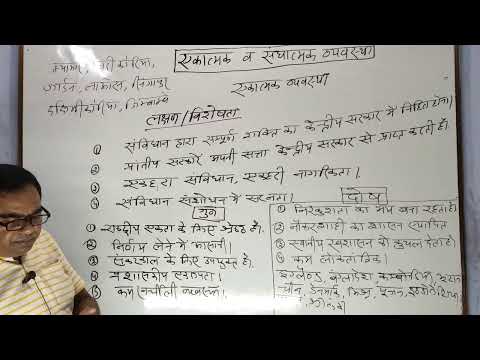 एकात्मक व संघात्मक व्यवस्था
एकात्मक व्यवस्था
दक्षिणी कोरिया, जिम्बाब्वे
लक्षण / विशेषता
① संविधान द्वारा सम्पूर्ण शक्ति का केन्द्रीय सरकार में निहित होना।
② प्रांतीय सरकारें अपनी सत्ता केन्द्रीय सरकार से प्राप्त करती हैं।
③ इकहरा संविधान, इकहरी नागरिकता।
④ संविधान संशोधन में सरलता।
गुण
① राष्ट्रीय एकता के लिए श्रेष्ठ है।
② निर्णय लेने में आसानी।
③ संकटकाल के लिए उपयुक्त है।
④ प्रशासनिक एकरूपता।
⑤ कम खर्चीली व्यवस्था।
दोष
① निरंकुशता का भय बना रहता है।
② नौकरशाही का शासन स्थापित
③ स्थानीय स्वशासन को कुचल देता है
④ कम लोकतांत्रिक।
इंग्लैण्ड, बांग्लादेश, कम्बोडिया,
चीन, डेनमार्क, मिस्र,